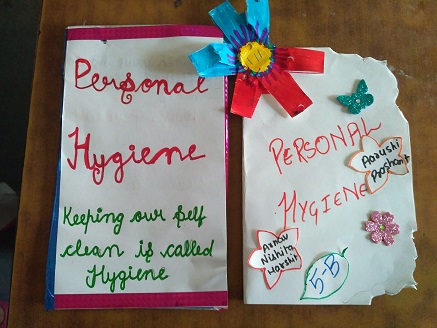 Personal
Hygiene
Keeping our self
clean is called
Hygiene
PERSONAL
HYGIENE
Aarushi
Prashant
Arnav
Nishita
Harshit
5-B